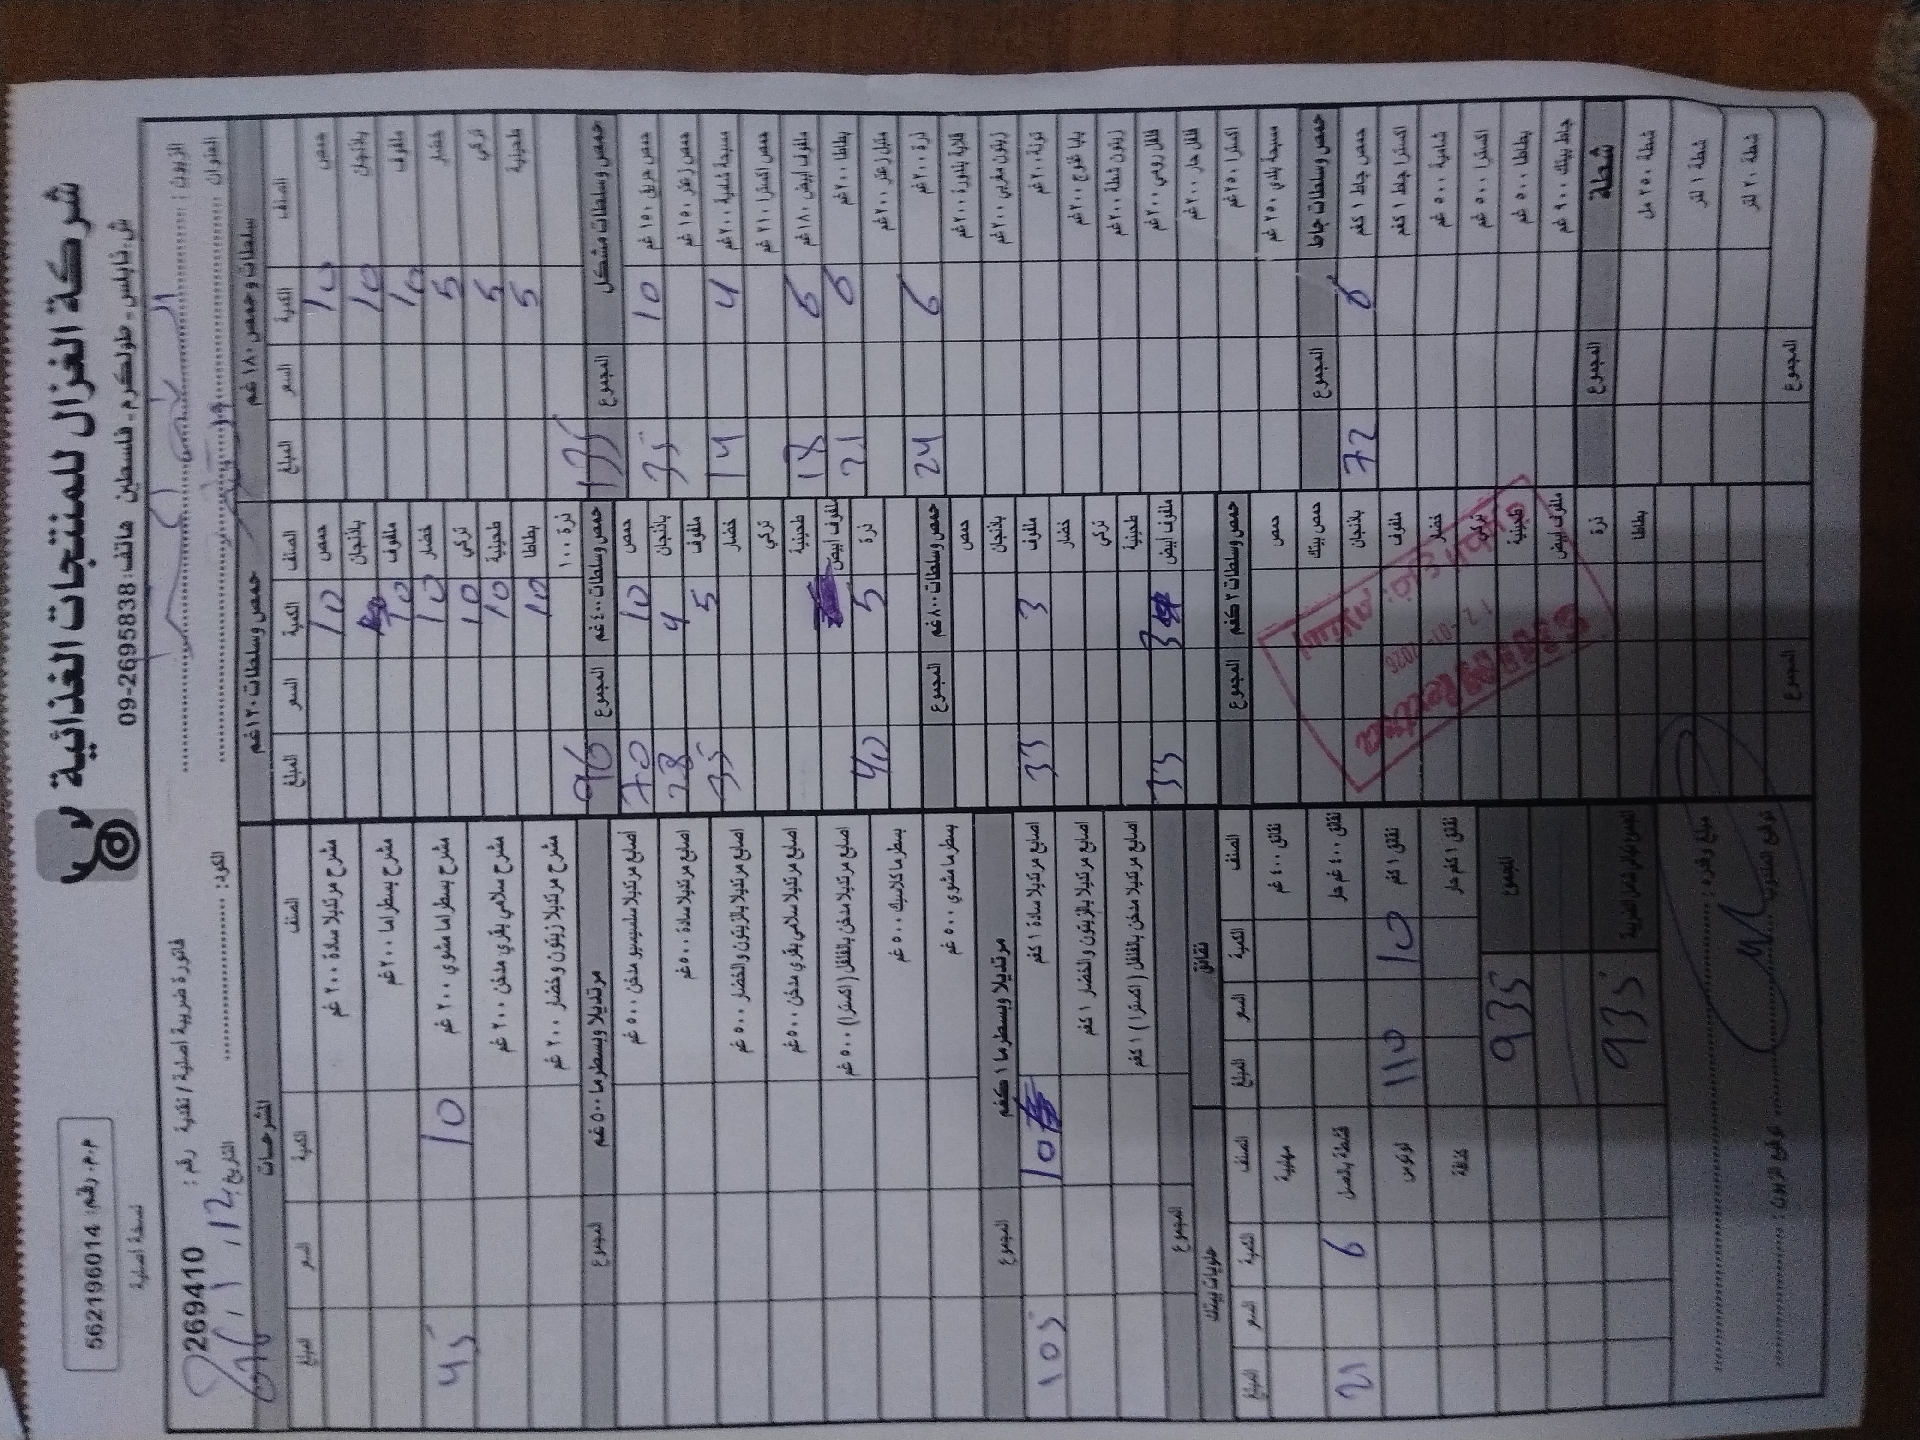 شركة الغزال للمنتجات الغذائية
ش. نابلس - طولكرم - فلسطين هاتف: 09-2695838
م.م. رقم: 562196014
نسخة اصلية
الزبون:
العنوان
الكود:
فاتورة ضريبية اصلية / نقدية رقم: 269410
التاريخ:
سلطات و حمص ١٨٠ غم
الصنف الكمية السعر المبلغ
حمص 10
باذنجان 10
ملفوف 10
خضار 5
تركي 5
طحينية 5
135
حمص وسلطات مشكل المجموع
حمص مزيق ١٥٠ غم 10 35
حمص زعتر ١٥٠ غم
مسبحة شامية ٢٠٠ غم 4 14
حمص اكسترا ٢١٠ غم
ملفوف ابيض ١٨٠ غم 6 18
بطاطا ٢٠٠ غم 6 21
متبل زعتر ٢٠٠ غم
ذرة ٢٠٠ غم 6 24
قلاية بندورة ٢٠٠ غم
زيتون مغربي ٢٠٠ غم
تونة ٢٠٠ غم
بابا غنوج ٢٠٠ غم
زيتون شطة ٢٠٠ غم
فلفل رومي ٢٠٠ غم
فلفل حار ٢٠٠ غم
اكسترا ٢٥٠ غم
مسبحة بلدي ٢٥٠ غم
حمص وسلطات جاط المجموع
حمص جاط ١ كغم 6 72
اكسترا جاط ١ كغم
شامية ٥٠٠ غم
اكسترا ٥٠٠ غم
بطاطا ٥٠٠ غم
جاط بيتك ٩٠٠ غم
شطة المجموع
شطة ٢٥٠ مل
شطة ١ لتر
شطة ٢٠ لتر
المجموع
حمص وسلطات ١٢٠ غم
الصنف الكمية السعر المبلغ
حمص 10
باذنجان
ملفوف 10
خضار 10
تركي 10
طحينية 10
بطاطا 10
ذرة ١٠٠
96
حمص وسلطات ٤٠٠ غم المجموع
حمص 10 70
باذنجان 4 28
ملفوف 5 35
خضار
تركي
طحينية
ملفوف ابيض
ذرة 5 40
حمص وسلطات ٨٠٠ غم المجموع
حمص
باذنجان
ملفوف 3 33
خضار
تركي
طحينية
ملفوف ابيض 3 33
حمص وسلطات ٣ كغم المجموع
حمص
حمص بيتك
باذنجان
ملفوف
خضار
تركي
طحينية
ملفوف ابيض
ذرة
بطاطا
المجموع
المشرحات
الصنف الكمية السعر المبلغ
مشرح مرتديلا سادة ٢٠٠ غم
مشرح بسطراما ٢٠٠ غم
مشرح بسطراما مشوي ٢٠٠ غم 10 45
مشرح سلامي بقري مدخن ٢٠٠ غم
مشرح مرتديلا زيتون وخضار ٢٠٠ غم
مرتديلا وبسطرما ٥٠٠ غم المجموع
اصابع مرتديلا سلسيسيو مدخن ٥٠٠ غم
اصابع مرتديلا سادة ٥٠٠ غم
اصابع مرتديلا بالزيتون والخضار ٥٠٠ غم
اصابع مرتديلا سلامي بقري مدخن ٥٠٠ غم
اصابع مرتديلا مدخن بالفلفل (اكسترا) ٥٠٠ غم
بسطرما كلاسيك ٥٠٠ غم
بسطرما مشوي ٥٠٠ غم
مرتديلا وبسطرما ١ كغم المجموع
اصابع مرتديلا سادة ١ كغم 10 105
اصابع مرتديلا بالزيتون والخضار ١ كغم
اصابع مرتديلا مدخن بالفلفل (اكسترا) ١ كغم
المجموع
نقانق
الصنف الكمية السعر المبلغ
نقانق ٤٠٠ غم
نقانق ٤٠٠ غم حار
نقانق ١ كغم 10 110
نقانق ١ كغم حار
حلويات بيتك
الصنف الكمية السعر المبلغ
مهلبية
قشطة بالعسل 6 21
لوتوس
المجموع 935
935
توقيع المندوب:
توقيع الزبون: